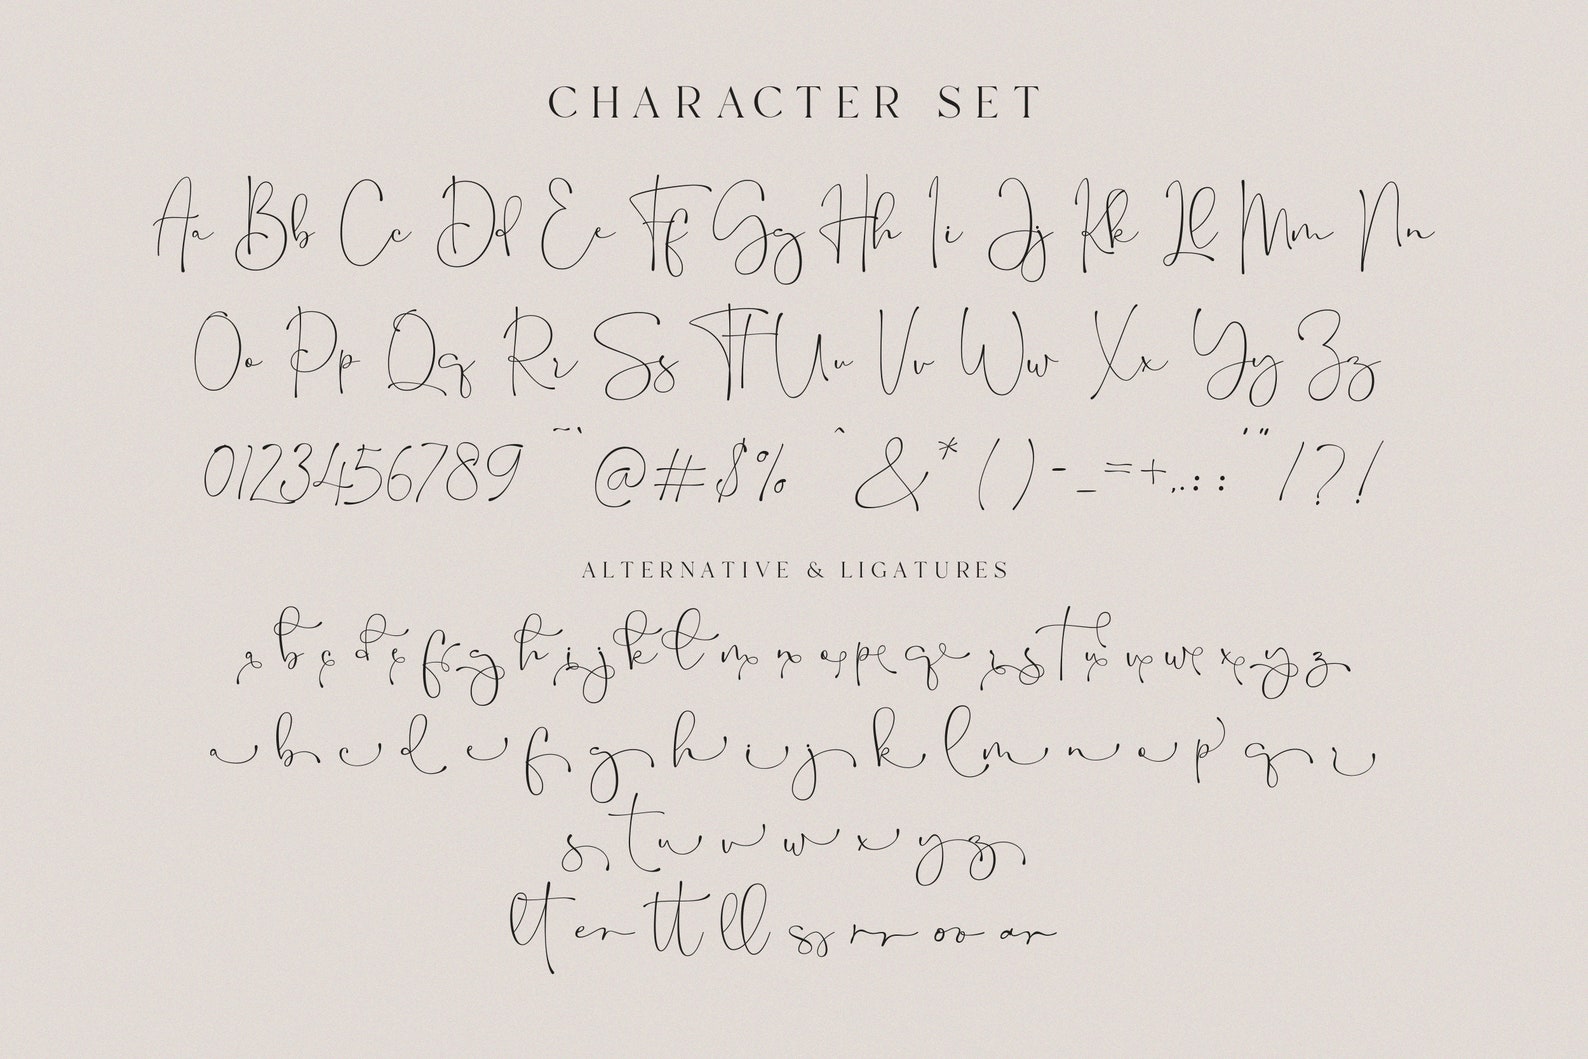 CHARACTER SET
Aa Bb Cc Dd Ee Ff Gg Hh Ii Jj Kk Ll Mm Nn
Oo Pp Qq Rr Ss Tt Uu Vv Ww Xx Yy Zz
0123456789 ~` @#$% ^ &*()-_=+,.:: '"/?!
ALTERNATIVE & LIGATURES
a b c d e f g h i j k l m n o p q r s t u v w x y z
a b c d e f g h i j k l m n o p q r
s t u v w x y z
lt er tt ll ss rr oo ar